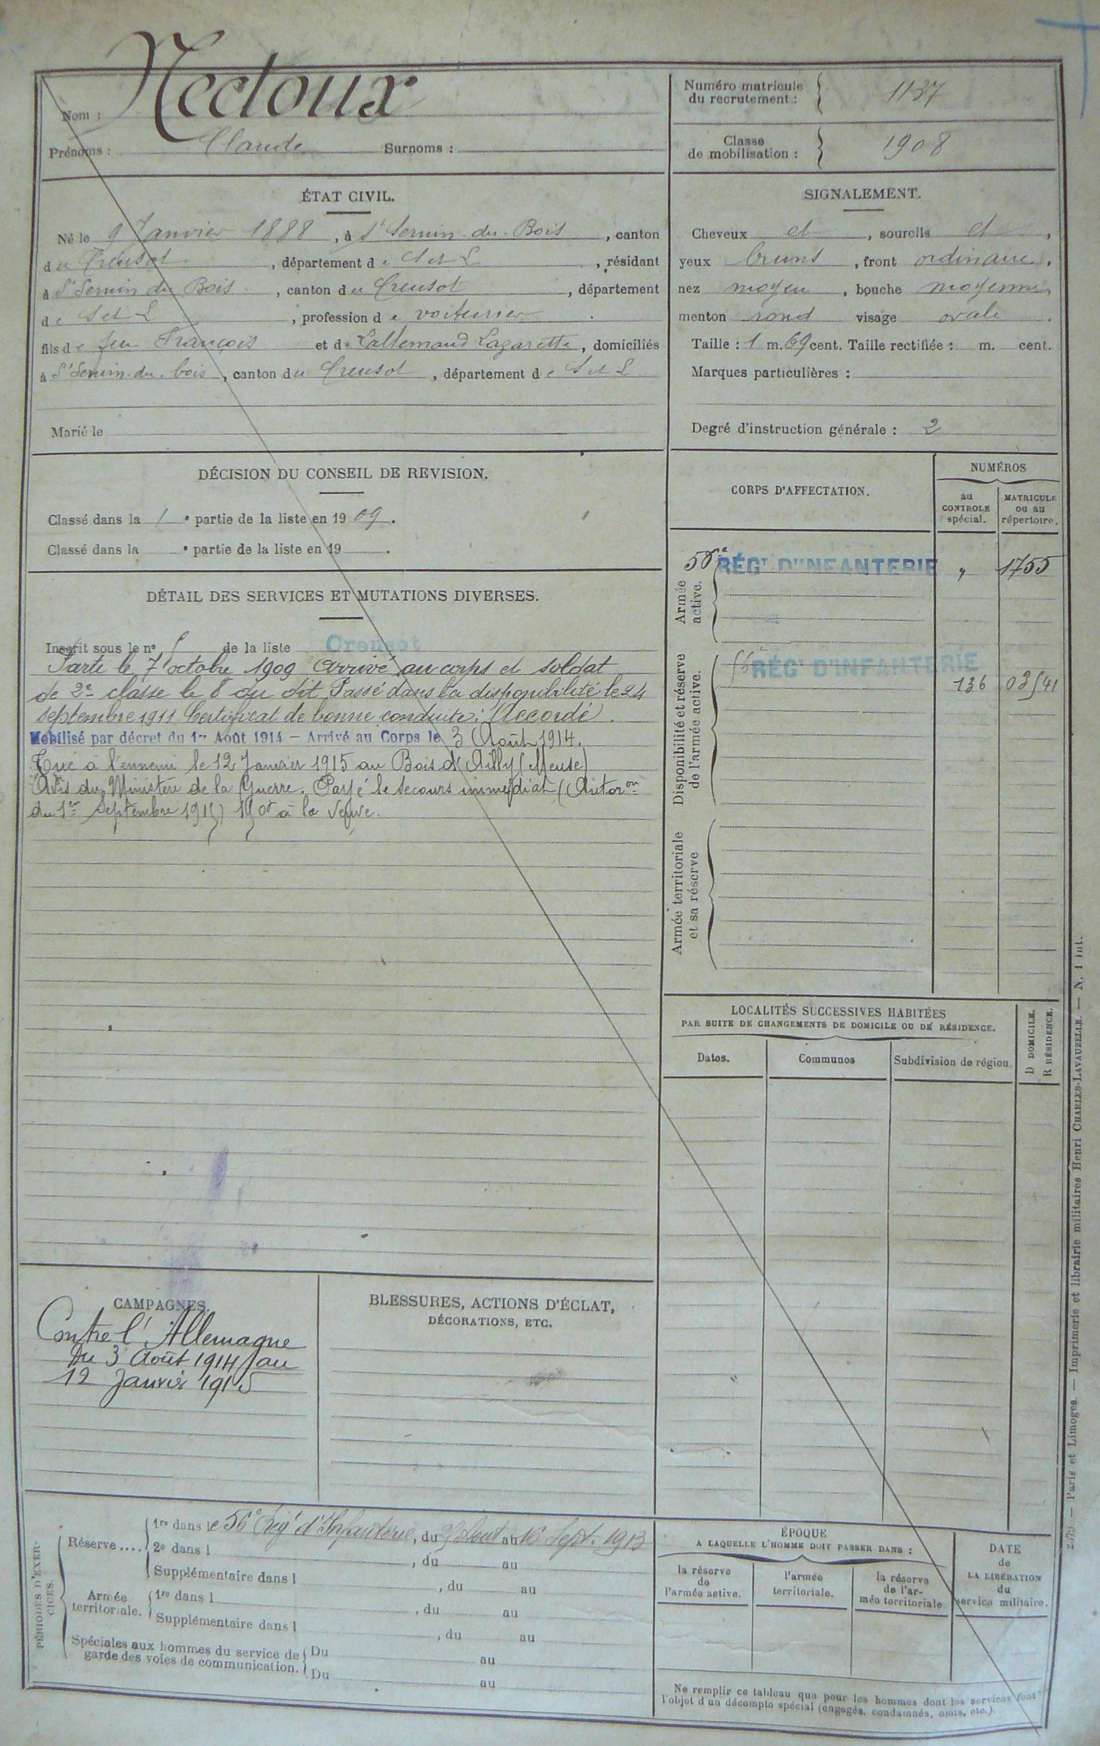 Nom : Nectoux
Prénoms : Claude Surnoms :
Numéro matricule du recrutement : 1137
Classe de mobilisation : 1908
ÉTAT CIVIL.
Né le 9 Janvier 1888, à St Sernin du Bois, canton
du Creusot, département de S et L, résidant
à St Sernin du Bois, canton du Creusot, département
de S et L, profession de voiturier.
fils de feu François et de Lallemand Lazarette, domiciliés
à St Sernin du bois, canton du Creusot, département de S et L
Marié le
SIGNALEMENT.
Cheveux et, sourcils et,
yeux bruns, front ordinaire,
nez moyen, bouche moyenne,
menton rond visage ovale.
Taille : 1 m. 69 cent. Taille rectifiée : m. cent.
Marques particulières :
Degré d'instruction générale : 2
DÉCISION DU CONSEIL DE REVISION.
Classé dans la 1 e partie de la liste en 1909.
Classé dans la e partie de la liste en 19 .
DÉTAIL DES SERVICES ET MUTATIONS DIVERSES.
Inscrit sous le n° de la liste Creusot
Parti le 7 octobre 1909 Arrivé au corps et soldat
de 2e classe le 8 du dit Passé dans la disponibilité le 24
septembre 1911 Certificat de bonne conduite : Accordé.
Mobilisé par décret du 1er Août 1914 – Arrivé au Corps le 3 Août 1914.
Tué à l'ennemi le 12 Janvier 1915 au Bois d'Ailly (Meuse)
Avis du Ministère de la Guerre. Payé le secours immédiat (Autoron
du 1er septembre 1915) 150f à la veuve.
CORPS D'AFFECTATION.
NUMÉROS
au CONTROLE spécial.
MATRICULE ou au répertoire.
Armée active.
56e RÉGT D'INFANTERIE " 1755
Disponibilité et réserve de l'armée active.
56e RÉGT D'INFANTERIE
136 03541
Armée territoriale et sa réserve
LOCALITÉS SUCCESSIVES HABITÉES
PAR SUITE DE CHANGEMENTS DE DOMICILE OU DE RÉSIDENCE.
Dates. Communes Subdivision de région.
D DOMICILE.
R RÉSIDENCE.
CAMPAGNES.
Contre l'Allemagne
du 3 Août 1914 au
12 Janvier 1915
BLESSURES, ACTIONS D'ÉCLAT,
DÉCORATIONS, ETC.
PÉRIODES D'EXERCICES.
Réserve .... 1re dans le 56e Régt d'Infanterie, du Août au Sept. 1913
2e dans l , du au
Supplémentaire dans l , du au
Armée territoriale. 1re dans l , du au
Supplémentaire dans l , du au
Spéciales aux hommes du service de garde des voies de communication. Du au
Du au
ÉPOQUE
A LAQUELLE L'HOMME DOIT PASSER DANS :
la réserve de l'armée active.
l'armée territoriale.
la réserve de l'armée territoriale
DATE de LA LIBÉRATION du service militaire.
Ne remplir ce tableau que pour les hommes dont les services font
l'objet d'un décompte spécial (engagés, condamnés, omis, etc.).
Paris et Limoges. — Imprimerie et librairie militaires Henri CHARLES-LAVAUZELLE. — N. 1 int.